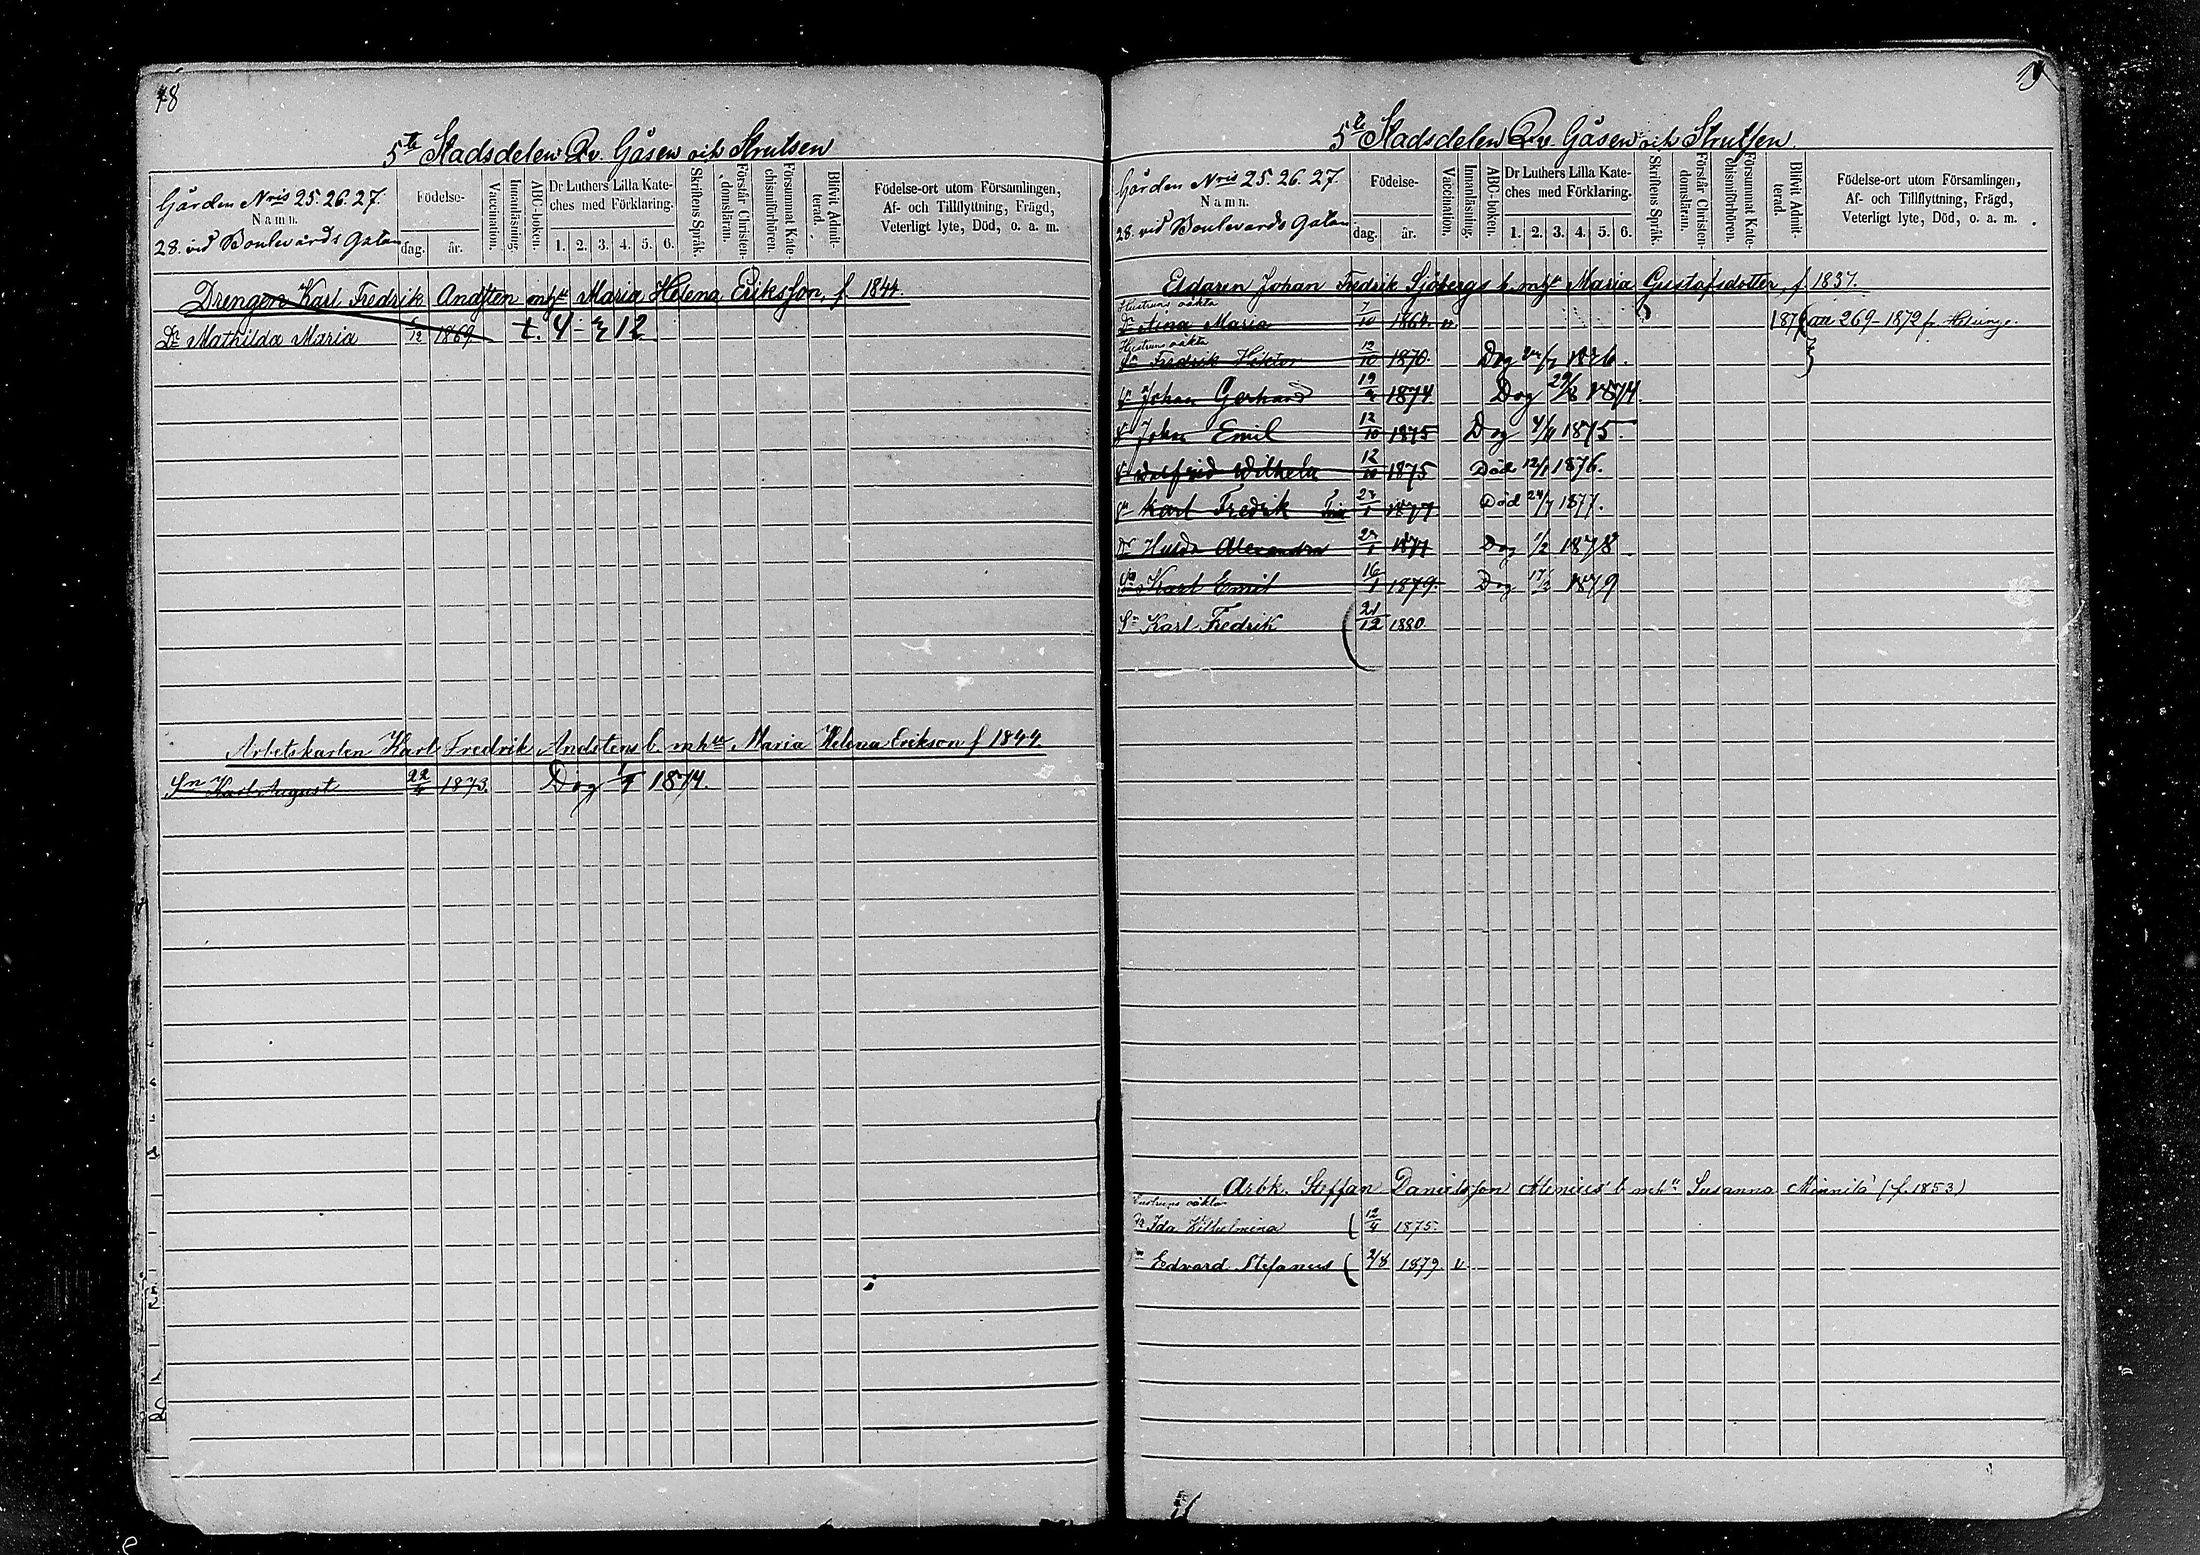 78
5te Stadsdelen Qv. Gåsen och Strutsen
Gården Nris 25. 26. 27.
Namn.
28. vid Boulevards Gatan
Födelse-
dag.
år.
Vaccination.
Innanläsning.
ABC-boken.
Dr Luthers Lilla Kate-
ches med Förklaring.
1. 2. 3. 4. 5. 6.
Skriftens Språk.
Förstår Christen-
domsläran.
Försummat Kate-
chismiförhören.
Blifvit Admit-
terad.
Födelse-ort utom Församlingen,
Af- och Tillflyttning, Frägd,
Veterligt lyte, Död, o. a. m.
Drengen Karl Fredrik Andsten mhu Maria Helena Eriksson, f. 1844.
Dr Mathilda Maria 12 1869 t. 4 12
Arbetskarlen Karl Fredrik Andstens b. mhu Maria Helena Erikson f 1844.
Sn Karl August 22 1873. Dog 1874.
5te Stadsdelen Qv. Gåsen och Strutsen
Gården Nris 25. 26. 27.
Namn.
28. vid Boulevards Gatan
Födelse-
dag.
år.
Vaccination.
Innanläsning.
ABC-boken.
Dr Luthers Lilla Kate-
ches med Förklaring.
1. 2. 3. 4. 5. 6.
Skriftens Språk.
Förstår Christen-
domsläran.
Försummat Kate-
chismiförhören.
Blifvit Admit-
terad.
Födelse-ort utom Församlingen,
Af- och Tillflyttning, Frägd,
Veterligt lyte, Död, o. a. m.
Eldaren Johan Fredrik Sjöbergs b. mhu Maria Gustafsdotter, f 1837.
Hustruns oäkta
Dr Maria 7/10 1864 v 269 - 1872 fr.
Hustruns oäkta
Sn Fredrik Viktor 12/10 1870. Dog 1876.
Sn Johan Gerhard 19 1874 Dog 29/8 1874.
Sn John Emil 12/10 1875 Dog 4/11 1875.
Sn Walfrid Wilhelm 12/10 1875 Död 12/1 1876.
Sn Karl Fredrik 1877 Död 24/7 1877.
Dr Hulda Alexandra 1877 Dog 1/2 1878
Sn Karl Emil 16/1 1879. Dog 1879
Sn Karl Fredrik 21/12 1880.
Arbk. Steffan Danielsson Alenius' b mhu Susanna Minnilä (f. 1853)
Hustruns oäkta
Dr Ida Wilhelmina 12 1875.
Sn Edvard Stefanus 2/8 1879 v